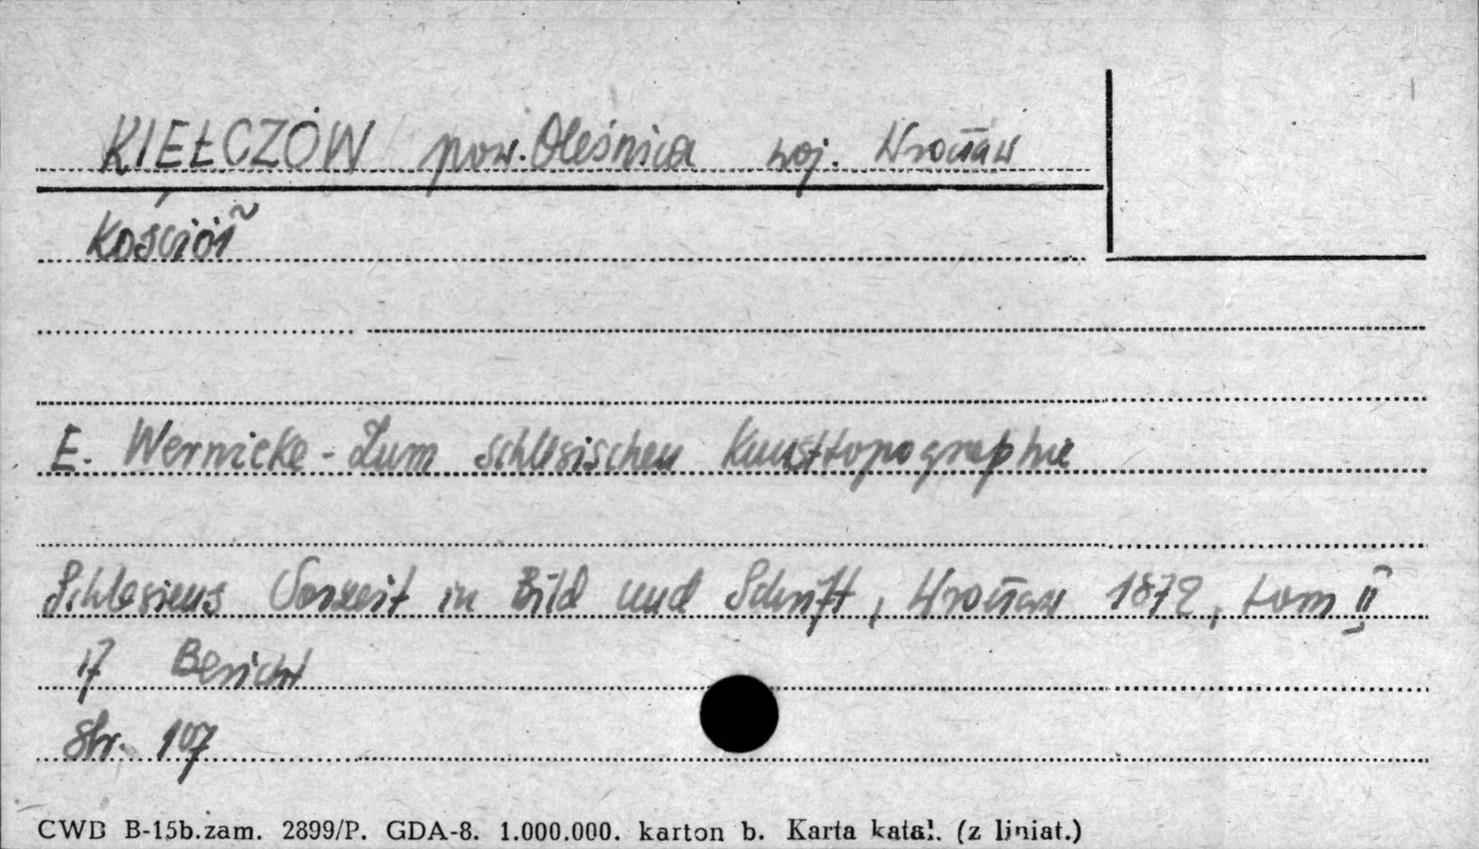 KIEŁCZÓW pow. Oleśnica woj. Wrocław
Kościół
E. Wernicke - Zum schlesischen Kunsttopographie
Schlesiens Vorzeit in Bild und Schrift, Wrocław 1872, tom II
17 Bericht
Str. 107
CWD B-15b.zam. 2899/P. GDA-8. 1.000.000. karton b. Karta katal. (z liniat.)